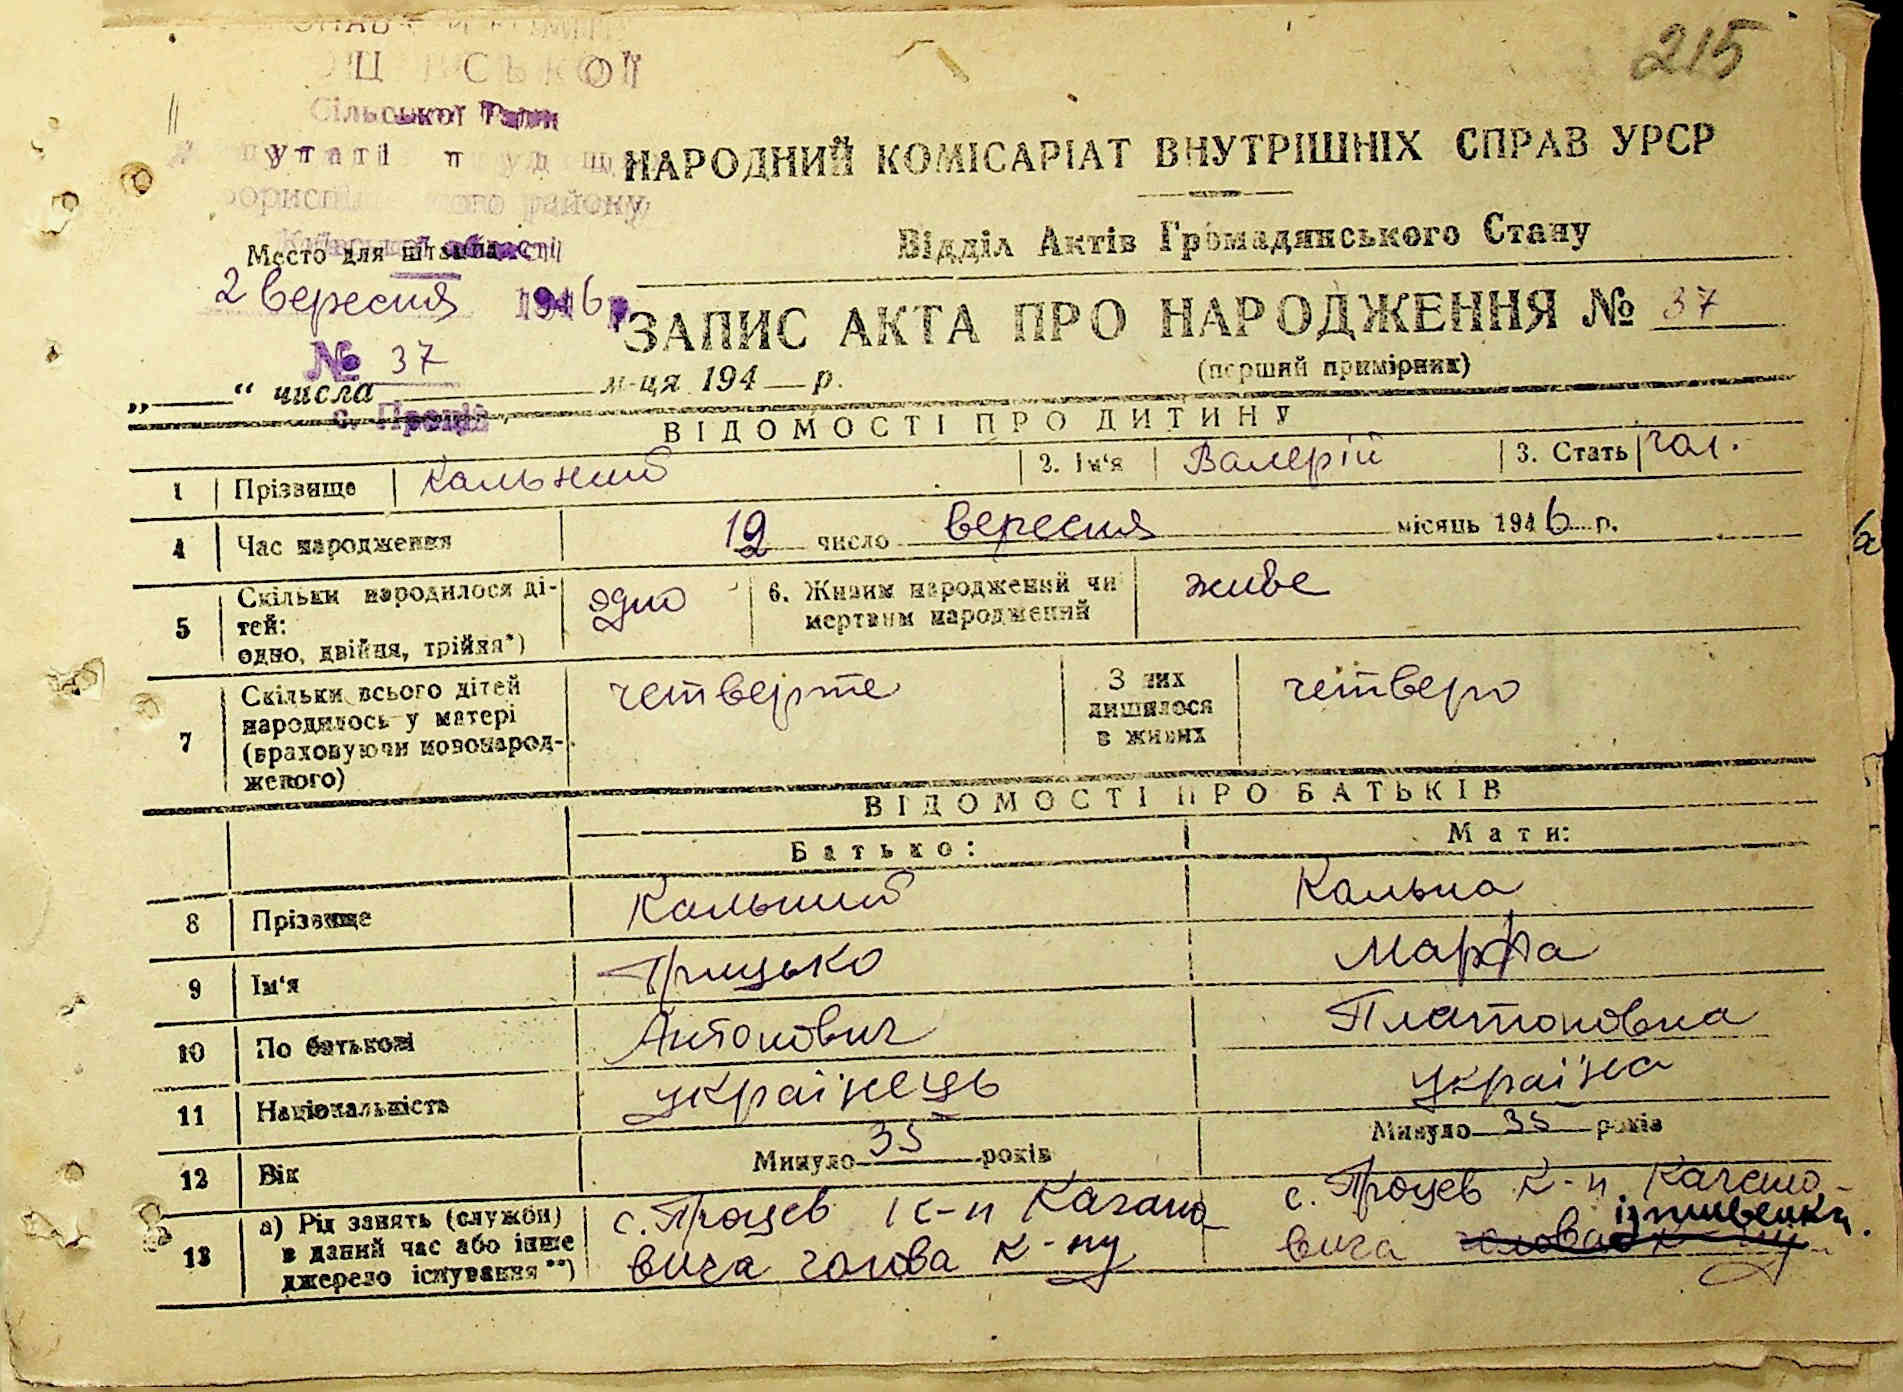 215
Сільської Ради
НАРОДНИЙ КОМІСАРІАТ ВНУТРІШНІХ СПРАВ УРСР
району
Відділ Актів Громадянського Стану
Место для штампа
области
2 вересня 1946 р.
ЗАПИС АКТА ПРО НАРОДЖЕННЯ № 37
(перший примірник)
№ 37
„ “ числа м-ця 194 р.
с. Проців
ВІДОМОСТІ ПРО ДИТИНУ
1 Прізвище Кальний 2. Ім'я Валерій 3. Стать чол.
4 Час народження число вересня місяць 1946 р.
5 Скільки народилося ді-
тей:
одно, двійня, трійня*) одно 6. Живим народжений чи
мертвим народжений живе
7 Скільки всього дітей
народилось у матері
(враховуючи новонарод-
женого) четверте З них
лишилося
в живих четверо
ВІДОМОСТІ ПРО БАТЬКІВ
Батько: Мати:
8 Прізвище Кальний Кальна
9 Ім'я Грицько Марфа
10 По батькові Антонович Платоновна
11 Національність українець україна
12 Вік Минуло 35 років Минуло 35 років
13 а) Рід занять (служби)
в даний час або інше
джерело існування**) с. Процев к-п Кагано-
вича голова к-пу с. Процев к-п Кагано-
вича